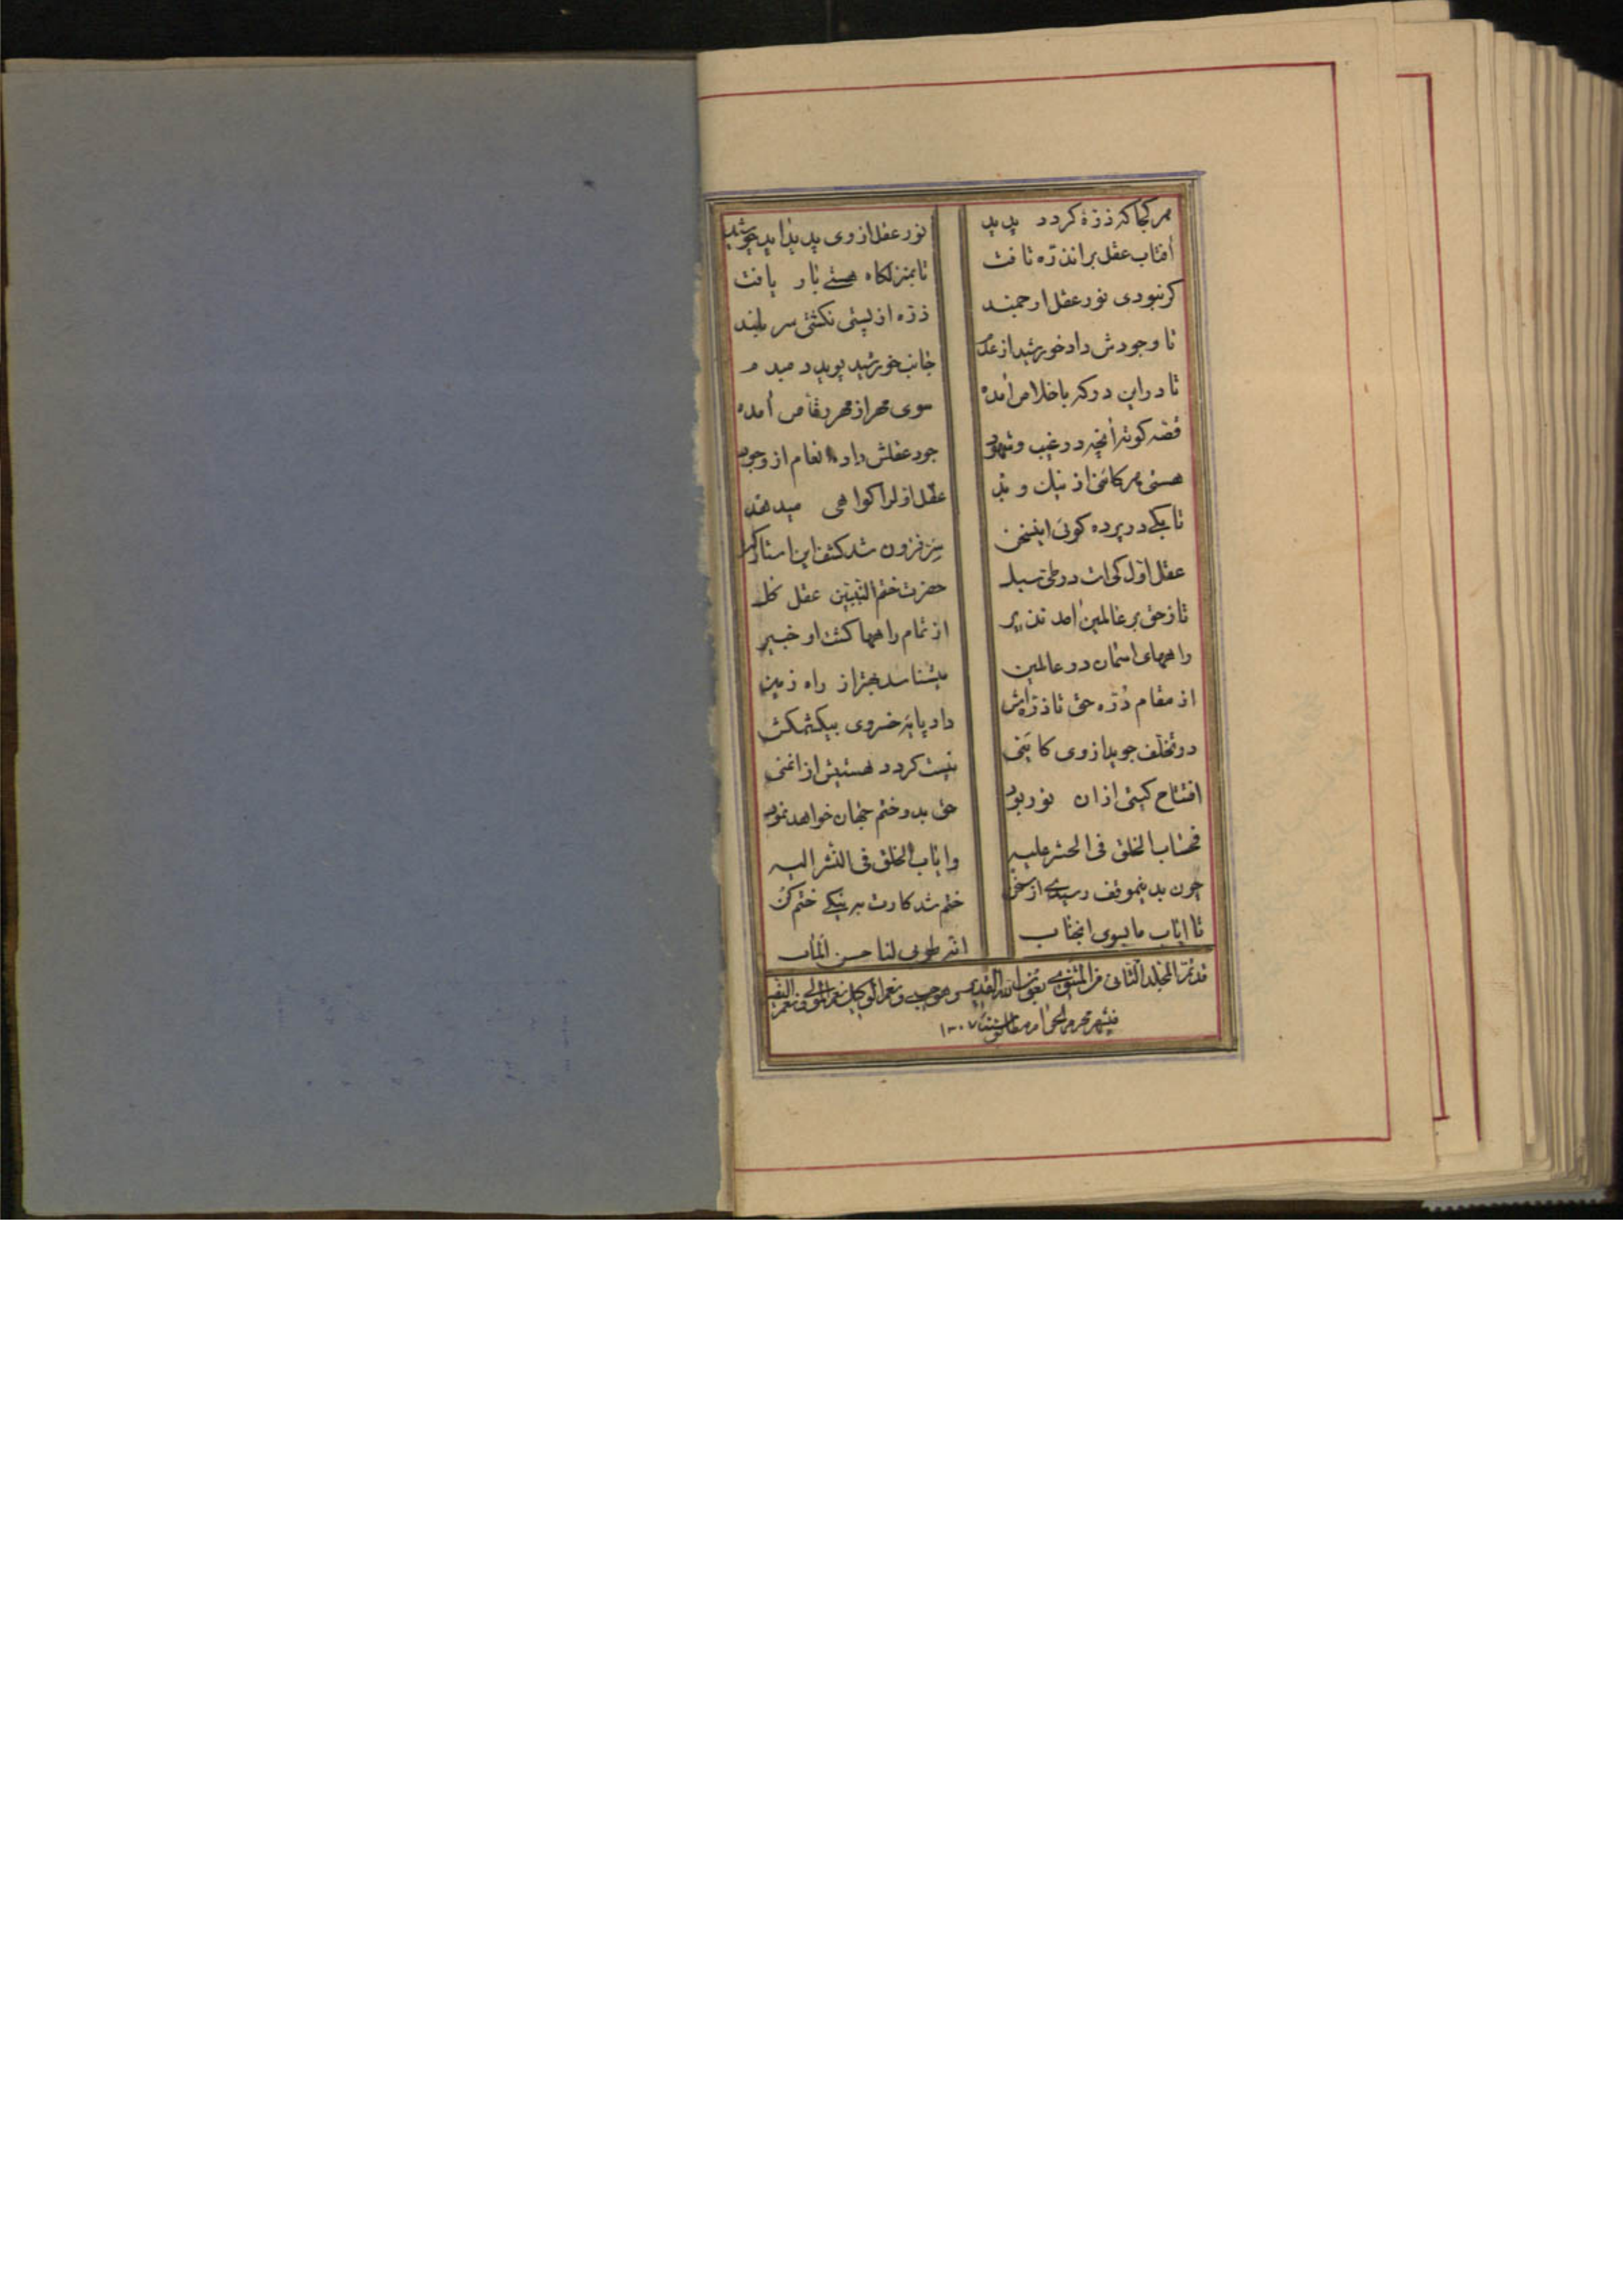 هر کجا که ذرهٔ کردد پدید نور عقل از وی پدید اید چو شید
آفتاب عقل بر انذره تافت تا بمنزلکاه هستی بار یافت
کر نبودی نور عقل ارجمند ذره از پستی نکشتی سر بلند
تا وجودش داد خورشید از عدم جانب خورشید پوید دمبدم
تا در این درکه باخلاص آمده سوی مهر از مهر رقاص آمده
قصه کوته آنچه در غیب و شهود جود عقلش داد انعام از وجود
هستی هر کائنی از نیک و بد عقل اول را کواهی میدهد
تا بکی در پرده کوئی اینسخن پرفزون شد کشف این استار کن
عقل اول کی است در طی سبل حضرت ختم النبیین عقل کل
تا ز حق بر عالمین آمد نذیر از تمام راهها کشت او خبیر
راههای اسمان در عالمین میشناسد بهتر از راه زمین
از مقام ذره حق تا ذره‌اش داد پایه خسروی بیکشمکش
در تخلف جوید از وی کاینی نیست کردد هستیش از انمنی
افتتاح کیتی از ان نور بود حق بدو ختم جهان خواهد نمود
فحساب الخلق فی الحشر علیه وایاب الخلق فی النشر الیه
چون بدینموقف رسیدی از سخن ختم شد کارت بر نیکی ختم کن
تا ایاب ما بسوی انجناب انه طوبی لنا حسن المآب
قد تم المجلد الثانی من المثنوی بعون الله القدیم و هو حسبی و نعم الوکیل نعم المولی و نعم النصیر
فیشهر محرم الحرام مطابق سنه ۱۳۰۷